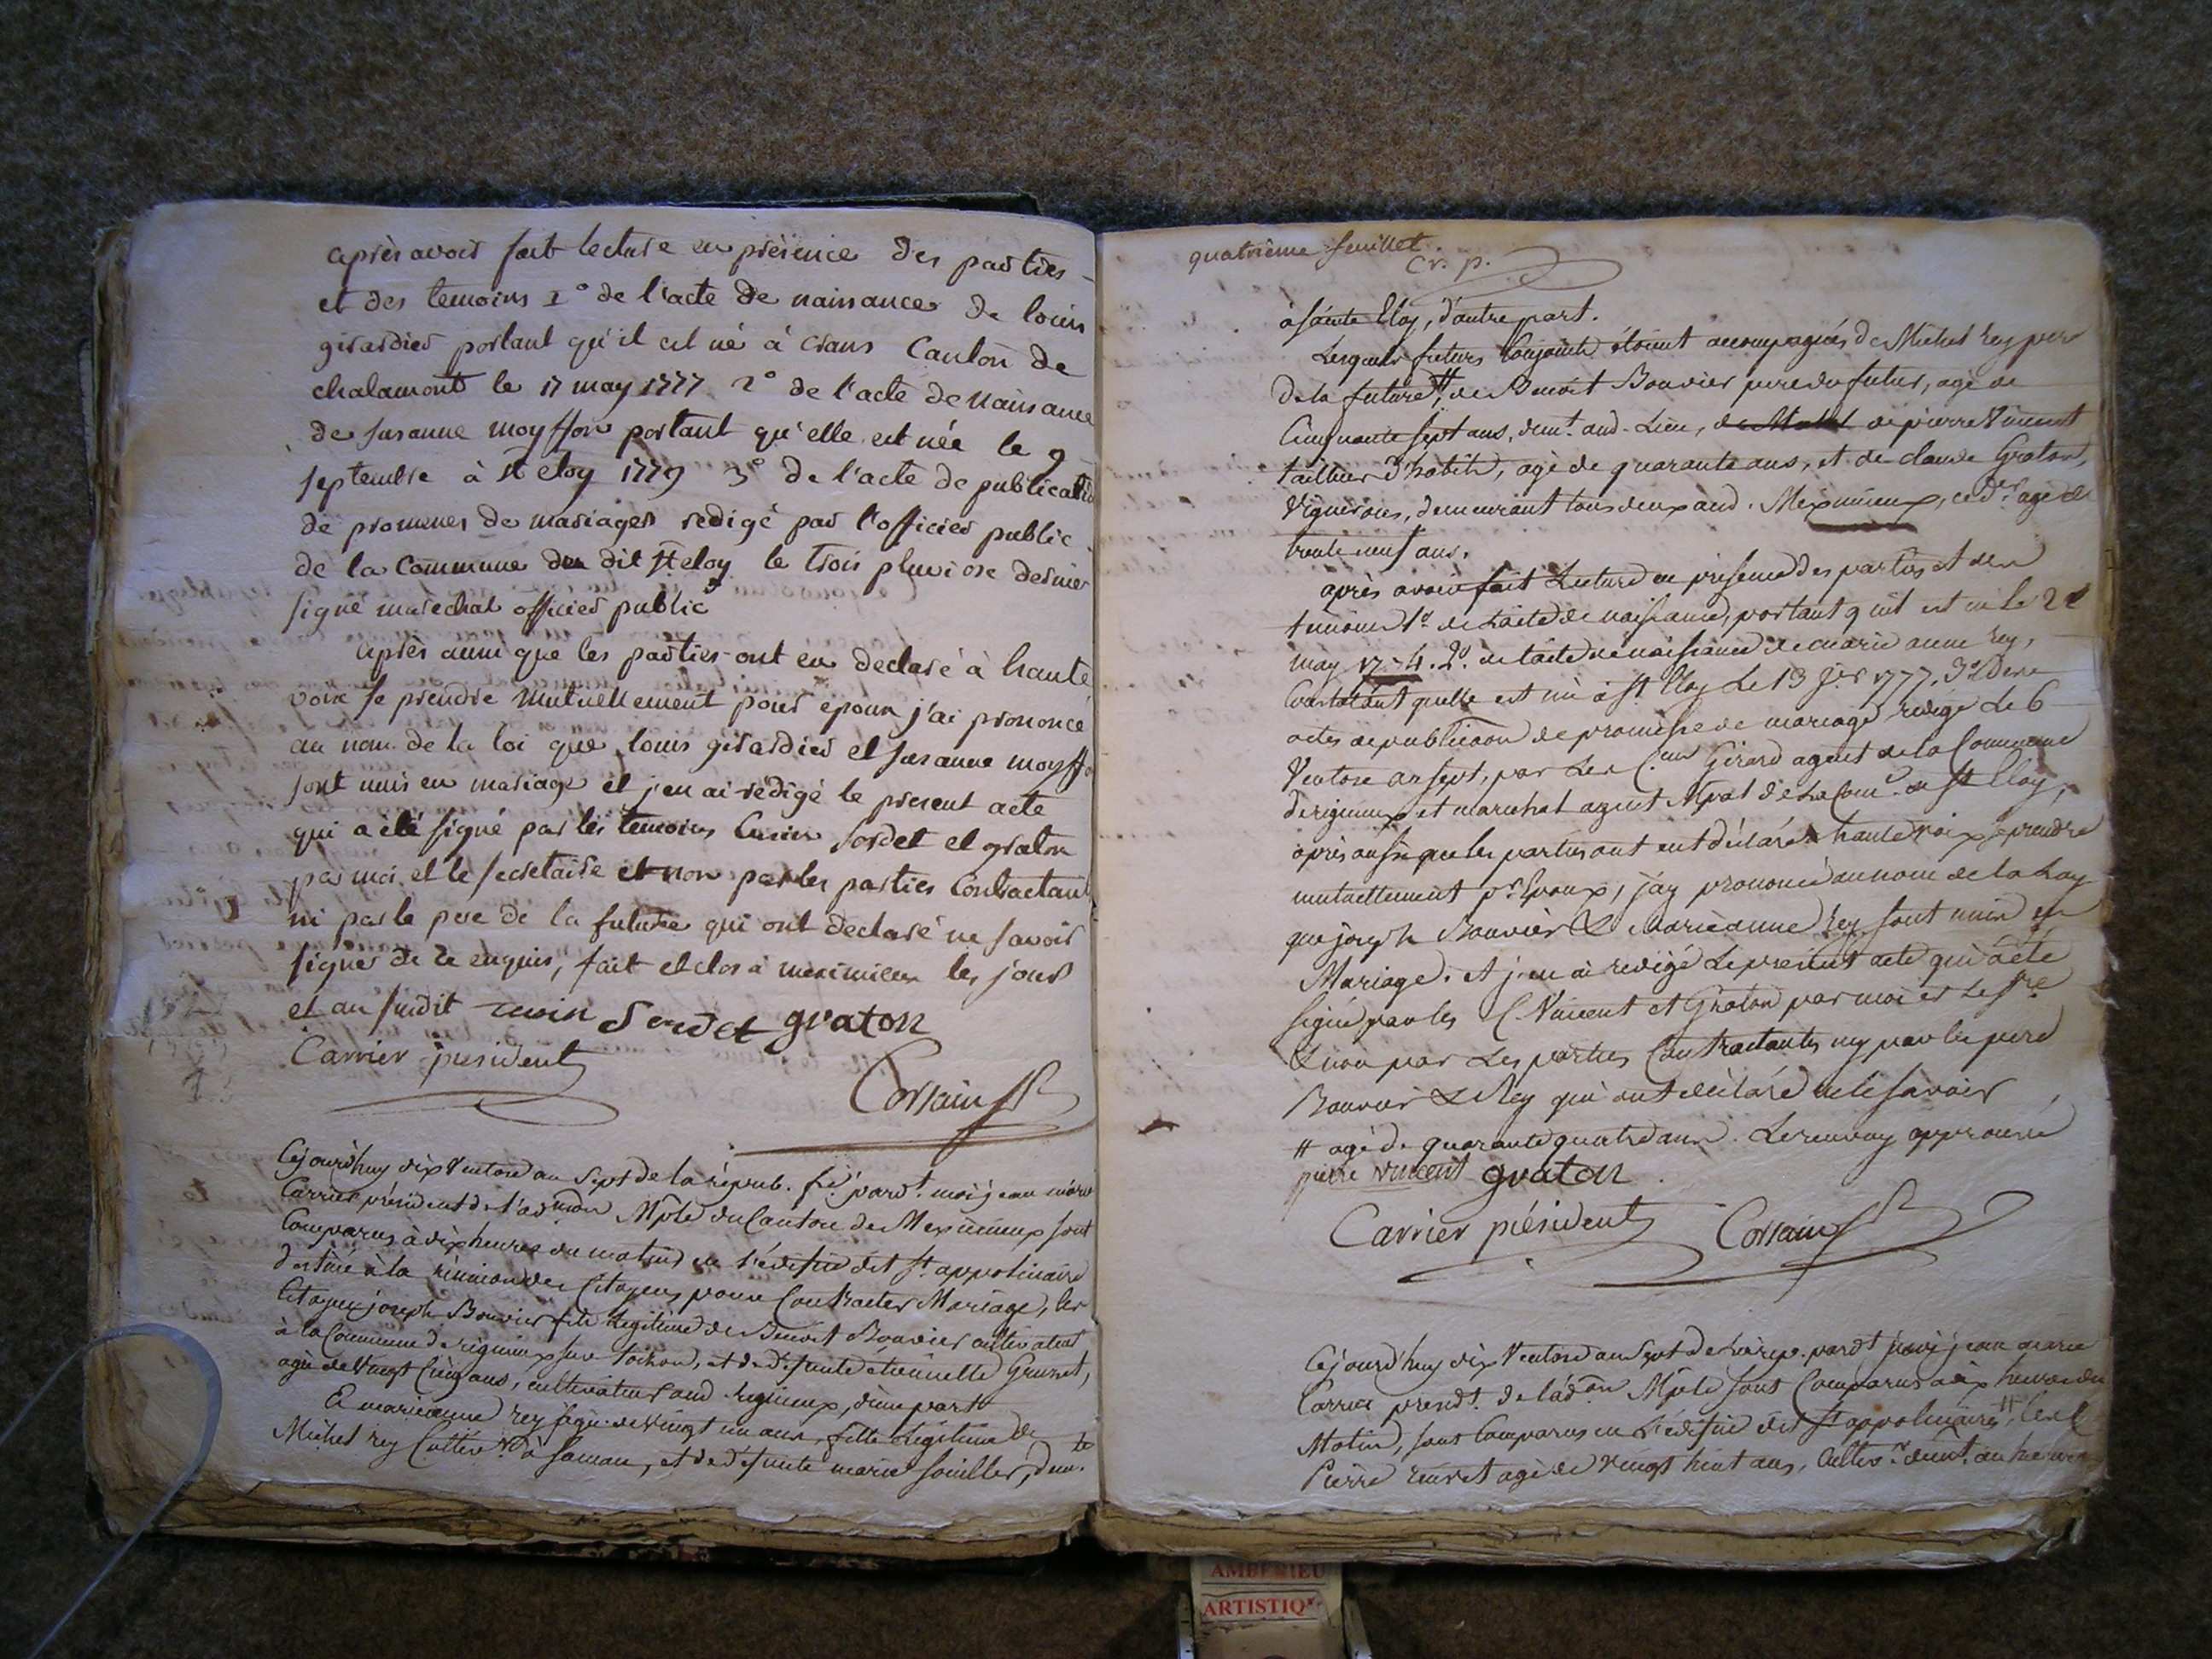 après avoir fait lecture en présence des parties
et des temoins 1° de l'acte de naissance de louis
girardier portant qu'il est né à crans Canton de
chalamont le 17 may 1777 2° de l'acte de naissance
de susanne moyffon portant qu'elle est née le 9
septembre à St eloy 1779 3° de l'acte de publication
de promesses de mariages redigé par l'officier public
de la Commune du dit St eloy le trois pluviose dernier
signé marechal officier public
après aussi que les parties ont eu declaré à haute
voix se prendre mutuellement pour epoux j'ai prononcé
au nom de la loi que louis girardier et susanne moyffon
sont unis en mariage et j'en ai rédigé le present acte
qui a été signé par les temoins Cusin Sordet et graton
par moi et le secretaire et non par les parties Contractant
ni par le pere de la future qui ont declaré ne savoir
signer de ce enquis, fait et clos à meximieux les jour
et an susdit cusin Sordet graton
Carrier president
Corsain
Cejourd'huy dix Ventose an Sept de la répub. fse pardt. moi jean marie
Carrier président de l'admon Mple du Canton de Meximieux sont
Comparus à dix heures du matin en l'édifice dit St. appolinaire
destiné à la réunion des Citoyens pour Contracter Mariage, les
Citoyens joseph Bouvier fils legitime de Benoit Bouvier cultivateur
à la Commune de rigneux sur toison, et de defunte etiennette Grunet,
agé de Vingt Cinq ans, cultivateur aud. rigneux, d'une part
Et marianne rey agée de Vingt un ans, fille Legitime de
Michel rey Cultivr. à Samans, et de defunte marie Souiller, demte.
quatrième feuillet
Cr. p.
à sainte Eloy, d'autre part.
Lesquels futurs Conjoints étoient accompagnés de Michel rey pere
De la future #, de Benoit Bouvier pere du futur, agé de
Cinquante sept ans, demt. aud. Lieu, de pierre Vincent
taillieur d'habits, agé de quarante ans, et de claude Graton,
Vigneron, demeurant tous deux aud. Meximieux, ce der agé de
trente neuf ans.
après avoir fait Lecture en presence des parties et des
temoins 1° de L'acte de naissance, portant quil est né le 22
may 1774. 2°. de l'acte de naissance de marie anne rey,
Constatant quelle est née à St Eloy Le 13 1777. 3° Des
actes de publication de promesse de mariage redigé Le 6
Ventose an sept, par Les Cens Girard agent de la Commune
de rigneux et marechal agent Mpal de La Come. de St Eloy,
après aussi que les parties ont eut déclaré à haute voix se prendre
mutuellement pr. Epoux, j'ay prononcé au nom de la Loy
que joseph Bouvier & Marieanne rey sont unis en
Mariage, et j'en ai redigé Le present acte qui a été
signé par les C. Vincent et Graton par moi et Le Sre
& non par Les parties Contractantes ny par les pere
Bouvier & Rey qui ont déclaré ne le savoir
# agé de quarante quatre ans. Le renvoy approuvé
pierre vincent graton
Carrier président Corsain
Cejourd'huy dix Ventose an Sept de la rep. pardt moi jean marie
Carrier presidt. de l'adon Mple sont Comparus à dix heures du
Matin, sont Comparus en L'édifice dit St appolinaire #, Les C.
Pierre agé de Vingt huit ans, Cultivr. demt. au
AMBERIEU
ARTISTIQ